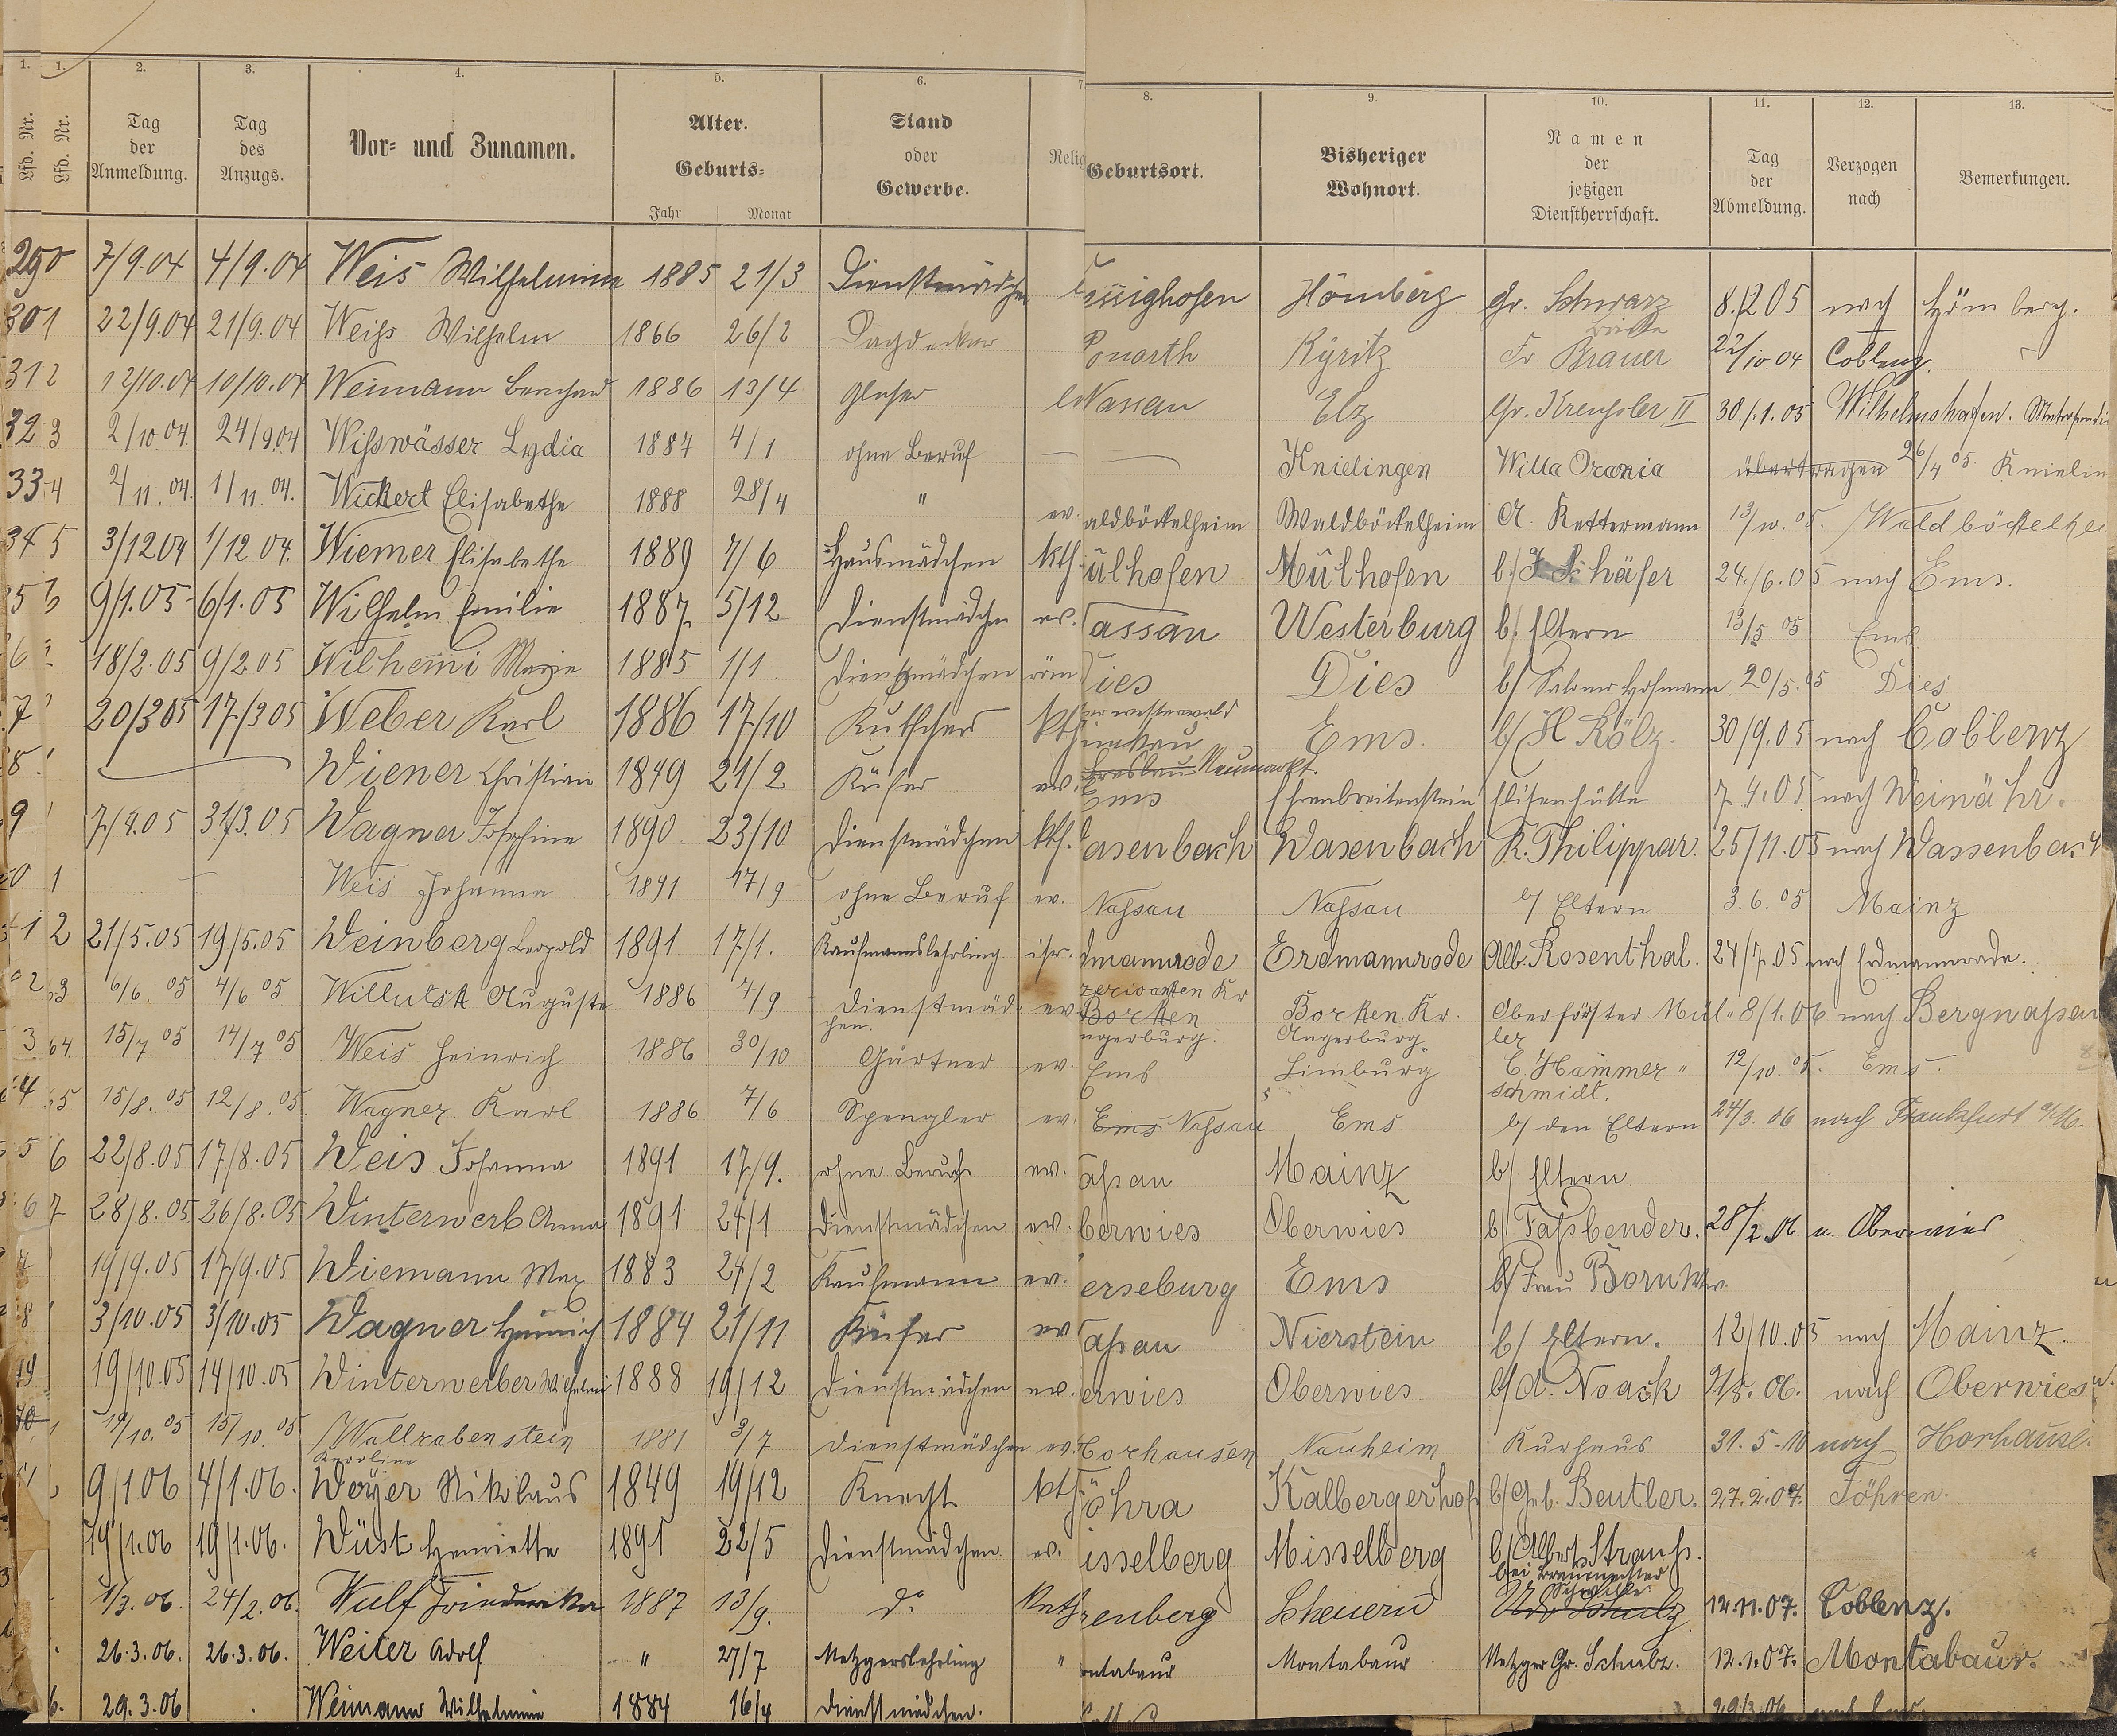 1. 1. 2. 3. 4. 5. 6. 7 8. 9. 10. 11. 12. 13.
Lfd. Nr. Lfd. Nr. Tag der Anmeldung. Tag des Anzugs. Vor- und Zunamen. Alter. Geburts- Jahr Monat Stand oder Gewerbe. Relig Geburtsort. Bisheriger Wohnort. Namen der jetzigen Dienstherrschaft. Tag der Abmeldung. Verzogen nach Bemerkungen.
7/9.04 4/9.04 Weis Wilhelmine 1885 21/3 Dienstmädchen essighofen Hömberg Gr. Schwarz 8./2 05 nach Hömberg.
301 22/9.04 21/9.04 Weiss Wilhelm 1866 26/2 Dagdecker Ponarth Kyritz Fr. Brauer 22/10.04 Coblenz.
312 12/10.04 10/10.04 Weimann Bernhard 1886 13/4 Glaser Nassau Elz Gr. Kreussler II 30./1.05 Wilhelmshafen.
323 2/10 04. 24/9.04 Wisswässer Lydia 1887 4/1 ohne Beruf Knielingen Willa Orania übertragen 26/4 05. Knielin
334 2/11.04. 1/11.04. Wickert Elisabethe 1888 28/4 " ev. aldböckelheim Waldböckelheim A. Kettermann 13/10.05. Waldböckelhei
345 3/12 04 1/12 04. Wiemer Elisabethe 1889 7/6 Hausmädchen kth. ülhofen Mülhofen b./J. Schäfer 24./6.05 nach Ems.
9/1.05 6/1.05 Wilhelm Emilie 1887 5/12 Dienstmädchen ev. assau Westerburg b. Eltern 13/5.05 Ems.
18/2.05 9/2 05 Wilhemi Marie 1885 1/1 Dienstmädchen röm ies Dies b/ Salomo Hofmann. 20/5.05 Dies
7 20/3 05 17/3 05 Weber Karl 1886 17/10 Kutscher kth westerwald Ems. b/ H Kölz. 30/9.05 nach Coblenz
8. Wiener Christian 1849 21/2 Küfer ev. Breslau Neumarkt.
9 7/4.05 31/3.05 Wagner Josephine 1890 23/10 Dienstmädchen kth. Ems Ehrenbreitenstein Elisenhütte 7.4.05 nach Weinähr.
asenbach Wasenbach K. Philippar. 25/11.05 nach Wassenbach
Weis Johanna 1891 17/9 ohne Beruf ev. Nassau Nassau b/ Eltern 3.6.05 Mainz
12 21/5.05 19/5.05 Weinberg Leopold 1891 17/1. Kaufmannslehrling isr. dmannrode Erdmannrode Alb. Rosenthal. 24/7.05 nach Erdmannrode.
6/6.05 4/6 05 Willutzk Auguste 1886 7/9 Dienstmäd-chen. ev Borken ngerburg. Borken Kr. Angerburg. Oberförster Mül-ler 8/1.06 nach Bergnassau
3 64 15/7.05 14/7 05 Weis Heinrich 1886 30/10 Gärtner ev. Ems Limburg C. Hammer-schmidt. 12/10.05. Ems.
15/8.05 12/8.05 Wagner Karl 1886 7/6 Spengler ev. Ems Nassau Ems b/ den Eltern 24/3.06 nach Frankfurt a/M.
56 22/8.05 17/8.05 Weis Johanna 1891 17/9. ohne Beruf ev. assau Mainz b/ Eltern.
67 28/8.05 26/8.05 Winterwerb Anna 1891 24/1 Dienstmädchen ev. berwies Oberwies b/ Fassbender. 28/2.06. n. Oberwies
19/9.05 17/9.05 Wiemann Max 1883 24/2 Kaufmann ev. erseburg Ems b/ Frau Born Ww.
8 3/10.05 3/10.05 Wagner Heinrich 1884 21/11 Küfer ev assau Nierstein b/ Eltern. 12/10.05 nach Mainz.
19/10.05 14/10.05 Winterwerber Wilhelmi 1888 19/12 Dienstmädchen ev. erwies Oberwies b/ A. Noack 2/5.06. nach Oberwies
19/10.05 15/10.05 Wallrabenstein Karoline 1881 3/7 Dienstmädchen ev. Horhausen Nauheim Kurhaus 31.5-10 nach Horhause.
9/1.06 4/1.06. Weyer Nikolaus 1849 19/12 Knecht kth öhra Kalbergerhof b/ Geb. Beutler. 27.2.07. Föhren.
19/1.06 19/1.06. Wüst Henriette 1891 22/5 Dienstmädchen ev. isselberg Misselberg b/ Albert Strauss.
1/3.06. 24/2.06. Wulf Friederike 1887 13/9. do kath renberg Scheuern bei Braumeister 12.11.07. Coblenz.
26.3.06. 26.3.06. Weiter Adolf " 27/7 Metzgerslehrling " ontabaur Montabaur Metzger Gr. Schulz. 12.1.07. Montabaur.
6. 29.3.06 Weimann Wilhelmine 1884 16/4 Dienstmädchen. 29/3.06